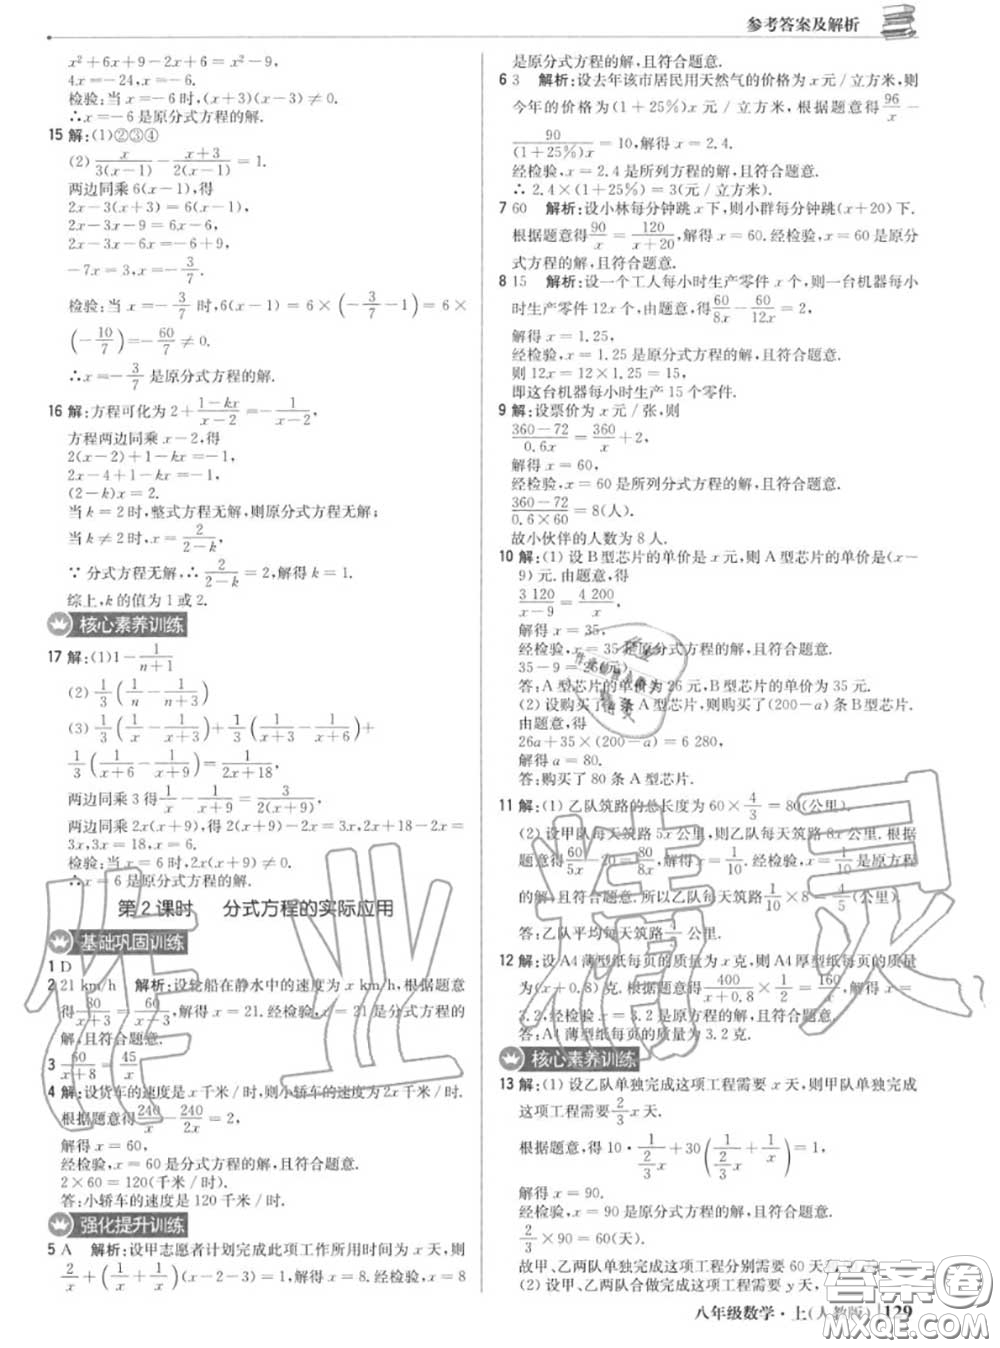 参考答案及解析
x²+6x+9-2x+6=x²-9,
4x=-24,x=-6.
检验:当x=-6时,(x+3)(x-3)≠0.
∴x=-6是原分式方程的解.
15 解:(1)②③④
(2) x/3(x-1) - (x+3)/2(x-1) = 1.
两边同乘6(x-1),得
2x-3(x+3)=6(x-1).
2x-3x-9=6x-6,
2x-3x-6x=-6+9,
-7x=3,x=-3/7.
检验:当x=-3/7时,6(x-1)=6×(-3/7-1)=6×
(-10/7)=-60/7≠0.
∴x=-3/7是原分式方程的解.
16 解:方程可化为2+(1-kx)/(x-2)=-1/(x-2),
方程两边同乘x-2,得
2(x-2)+1-kx=-1,
2x-4+1-kx=-1,
(2-k)x=2.
当k=2时,整式方程无解,则原分式方程无解;
当k≠2时,x=2/(2-k),
∵分式方程无解,∴2/(2-k)=2,解得k=1.
综上,k的值为1或2.
核心素养训练
17 解:(1)1-1/(n+1)
(2) 1/3(1/n-1/(n+3))
(3) 1/3(1/x-1/(x+3))+1/3(1/(x+3)-1/(x+6))+
1/3(1/(x+6)-1/(x+9))=1/(2x+18),
两边同乘3得1/x-1/(x+9)=3/(2x+18),
两边同乘2x(x+9),得2(x+9)-2x=3x,2x+18-2x=
3x,3x=18,x=6.
检验:当x=6时,2x(x+9)≠0.
∴x=6是原分式方程的解.
第2课时 分式方程的实际应用
基础巩固训练
1 D
2 21 km/h 解析:设轮船在静水中的速度为x km/h,根据题意
得30/(x+3)=/(x-3).解得x=21.经检验,x=21是分式方程的解,
且符合题意.
3 60/(x+8)=45/x
4 解:设货车的速度是x千米/时,则小轿车的速度是2x千米/时.
根据题意得240/x-240/2x=2,
解得x=60,
经检验,x=60是分式方程的解,且符合题意.
2×60=120(千米/时).
答:小轿车的速度是120千米/时.
强化提升训练
5 A 解析:设甲志愿者计划完成此项工作所用时间为x天,则
2/x+(1/x+1/x)(x-2-3)=1,解得x=8.经检验,x=8
是原分式方程的解,且符合题意.
6 3 解析:设去年该市居民用天然气的价格为x元/立方米,则
今年的价格为(1+25%)x元/立方米,根据题意得96/x
-90/(1+25%)x=10,解得x=2.4.
经检验,x=2.4是所列方程的解,且符合题意.
∴2.4×(1+25%)=3(元/立方米).
7 60 解析:设小林每分钟跳x下,则小群每分钟跳(x+20)下.
根据题意得90/x=120/(x+20),解得x=60.经检验,x=60是原分
式方程的解,且符合题意.
8 15 解析:设一个工人每小时生产零件x个,则一台机器每小
时生产零件12x个,由题意,得60/8x-60/12x=2,
解得x=1.25,
经检验,x=1.25是原分式方程的解,且符合题意.
则12x=12×1.25=15,
即这台机器每小时生产15个零件.
9 解:设票价为x元/张,则
(360-72)/0.6x=360/x+2,
解得x=60,
经检验,x=60是所列分式方程的解,且符合题意.
(360-72)/(0.6×60)=8(人).
故小伙伴的人数为8人.
10 解:(1)设B型芯片的单价是x元,则A型芯片的单价是(x-
9)元.由题意,得
3 120/(x-9)=4 200/x,
解得x=35,
经检验,x=35是原分式方程的解,且符合题意.
35-9=26(元).
答:A型芯片的单价为26元,B型芯片的单价为35元.
(2)设购买了a条A型芯片,则购买了(200-a)条B型芯片.
由题意,得
26a+35×(200-a)=6 280,
解得a=80.
答:购买了80条A型芯片.
11 解:(1)乙队筑路的总长度为60×4/3=80(公里).
(2)设甲队每天筑路5x公里,则乙队每天筑路8x公里.根据
题意得60/5x-20=80/8x,解得x=1/10.经检验,x=1/10是原方程
的解,且符合题意.则乙队每天筑路1/10×8=4/5(公里).
答:乙队平均每天筑路4/5公里.
12 解:设A4薄型纸每页的质量为x克,则A4厚型纸每页的质量
为(x+0.8)克.根据题意得400/(x+0.8)×1/2=160/x,解得x=
3.2,经检验,x=3.2是原方程的解,且符合题意.
答:A4薄型纸每页的质量为3.2克.
核心素养训练
13 解:(1)设乙队单独完成这项工程需要x天,则甲队单独完成
这项工程需要2/3x天.
根据题意,得10·1/(2/3x)+30(1/(2/3x)+1/x)=1,
解得x=90.
经检验,x=90是原分式方程的解,且符合题意.
2/3×90=60(天).
故甲、乙两队单独完成这项工程分别需要60天
(2)设甲、乙两队合做完成这项工程需要y天,
八年级数学·上(人教版) 129
作业精灵
答案圈